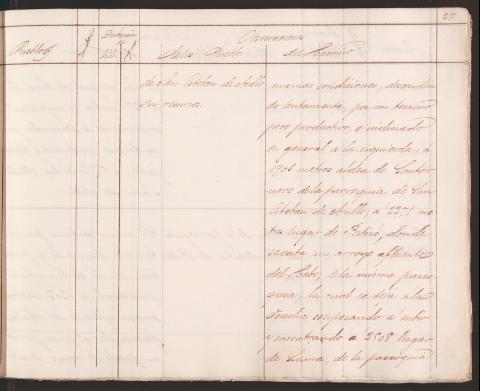 27
Observaciones
Pueblos
Kil.
de los Pueblos
del Camino
de San Esteban de Anllo
Sin recursos.
mismas condiciones, descendien
do lentamente, por un terreno
poco productivo, é inclinado
en general a la izquierda; a
1908 metros aldea de Souto
novo de la parroquia de San
Esteban de Anllo; a 2271 me
tros lugar de donde
se corta un arroyo afluente
del Cabe, de la misma parro
quia, la cual se deja a la
derecha empezando a subir
y encontrando a 2508 lugar
de Lama, de la parroquia